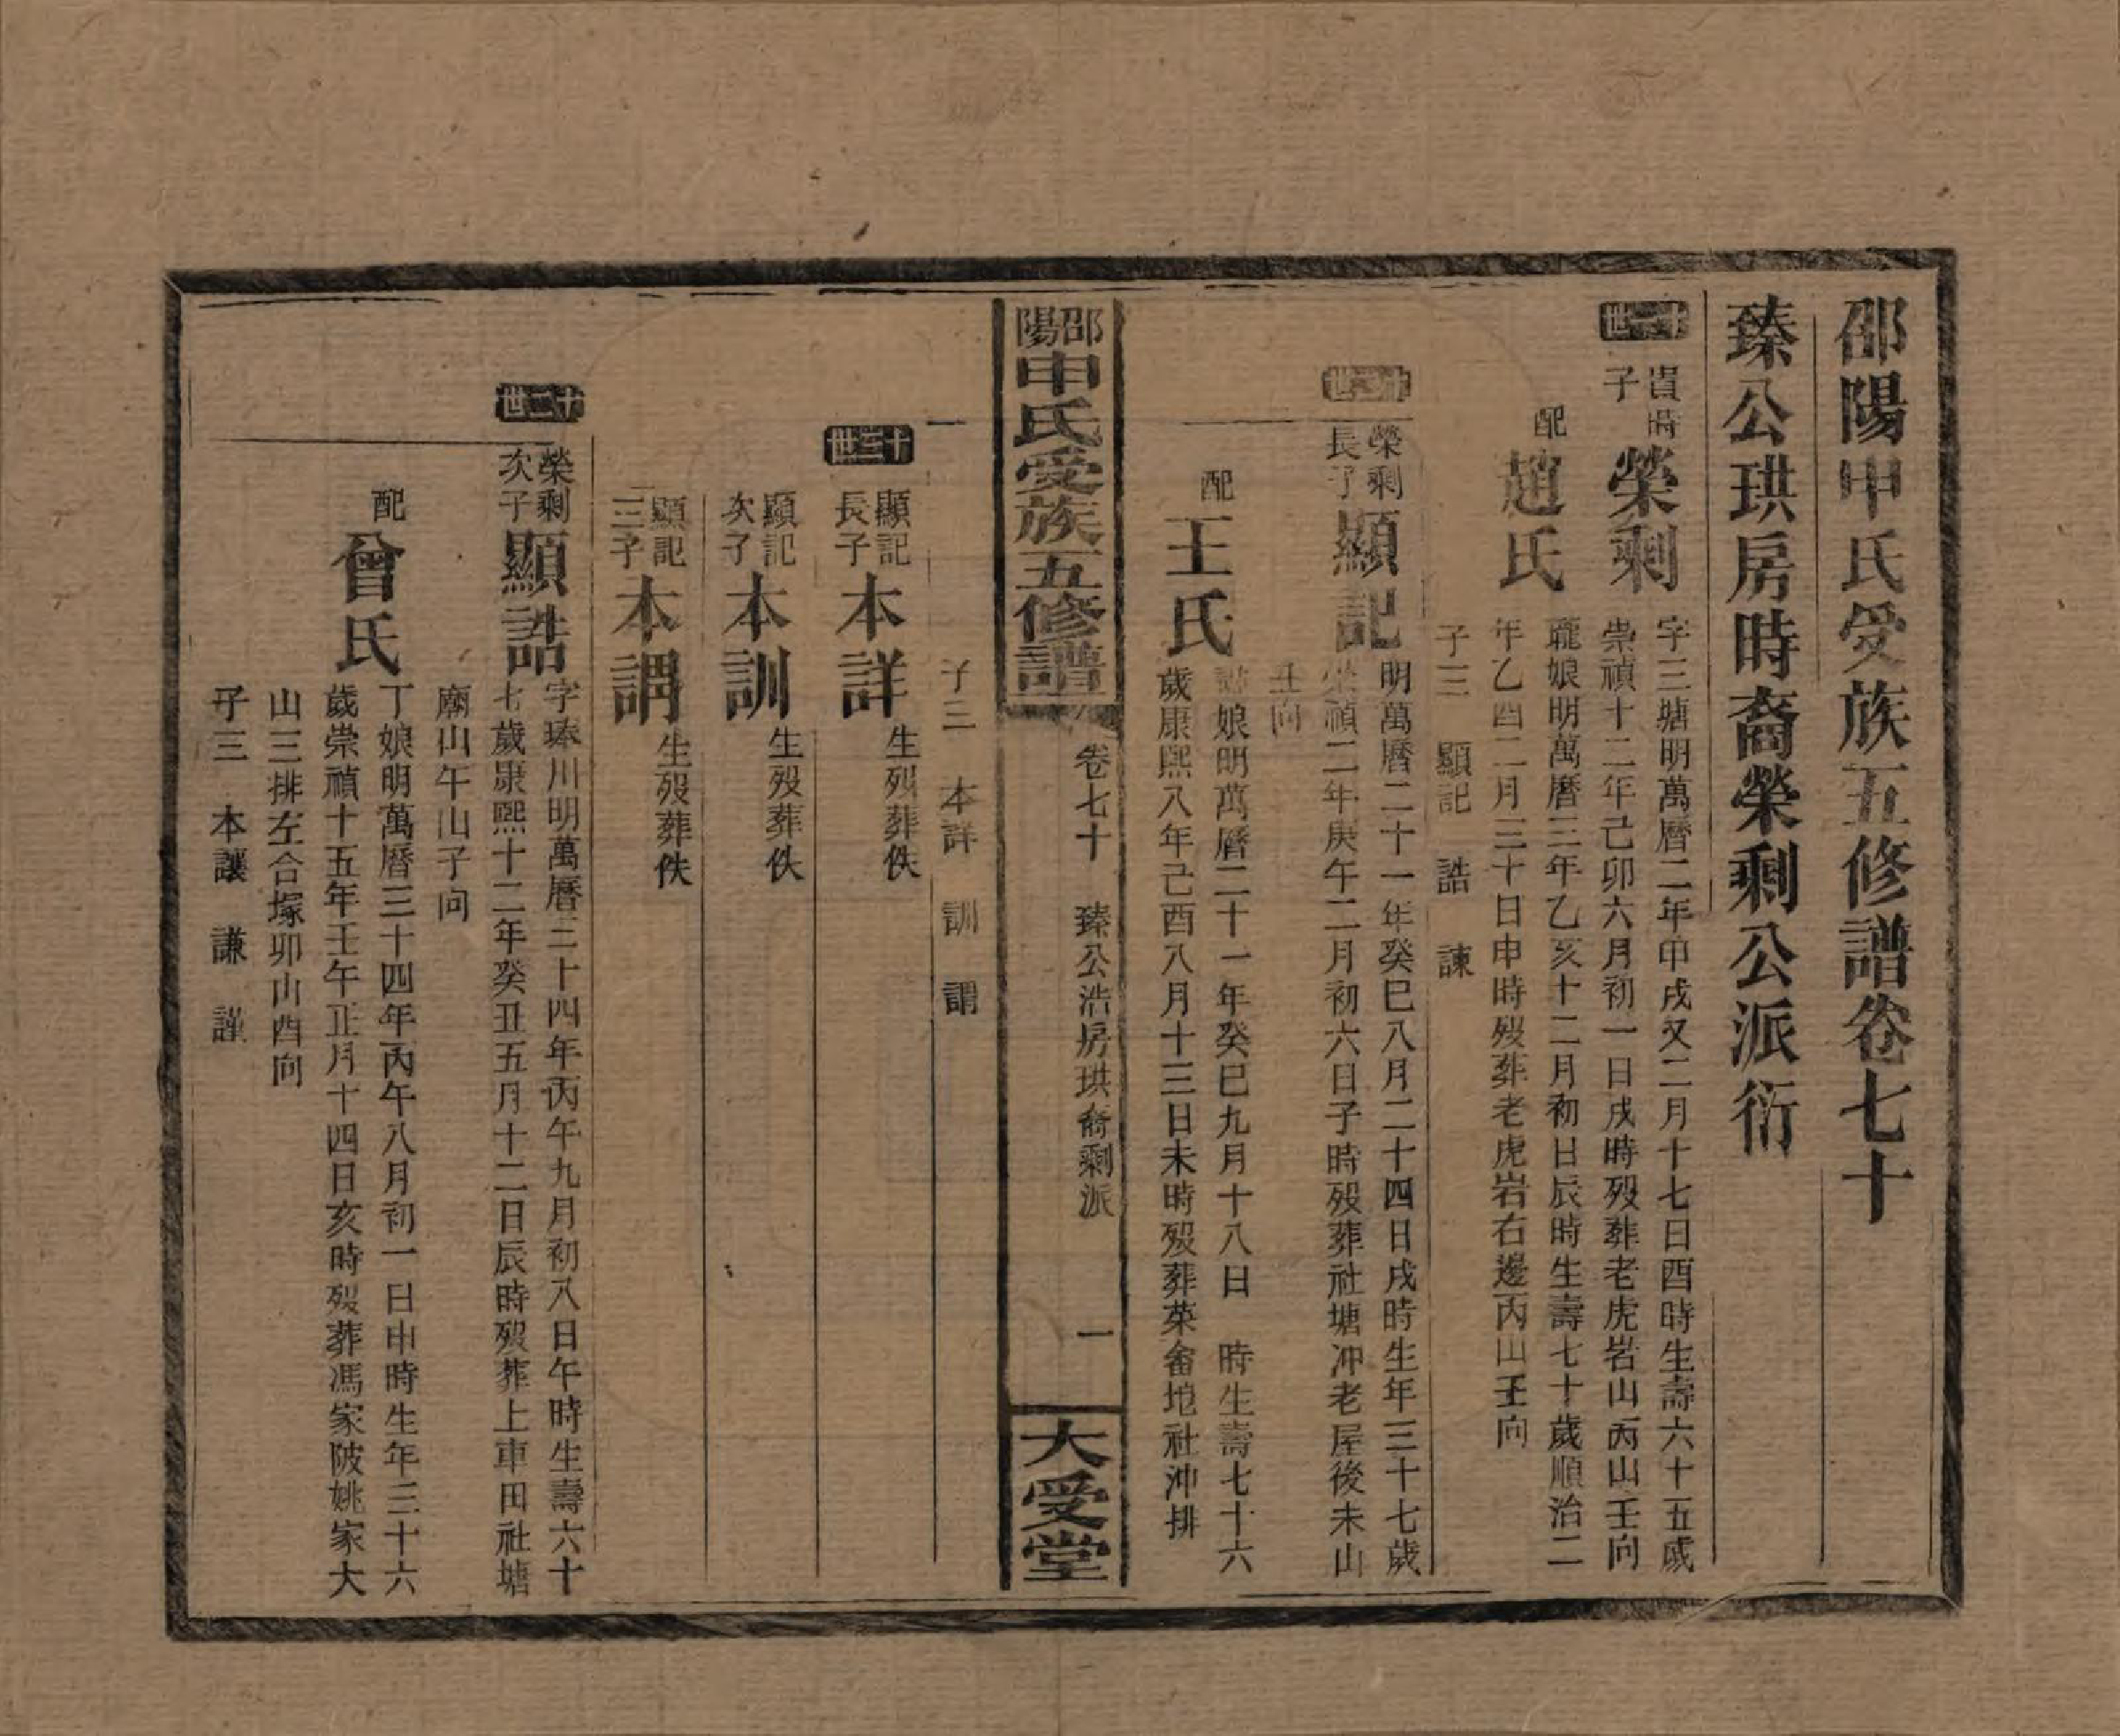 邵陽申氏受族五修譜卷七十
臻公珙房時裔榮剩公派衍
十一世
貴時子 榮剩
字三塘明萬曆二年甲戌又二月十七日酉時生壽六十五歲
崇禎十二年己卯六月初一日戌時歿葬老虎岩山丙山壬向
配 趙氏
龍娘明萬曆三年乙亥十二月初日辰時生壽七十歲順治二
年乙酉二月三十日申時歿葬老虎岩右邊丙山壬向
子三 顯記 誥 諫
十二世
榮剩長子 顯記
明萬曆二十一年癸巳八月二十四日戌時生年三十七歲
崇禎二年庚午二月初六日子時歿葬社塘冲老屋後未山
丑向
配 王氏
娘明萬曆二十一年癸巳九月十八日 時生壽七十六
歲康熙八年己酉八月十三日未時歿葬菜畬地社沖排
邵陽申氏受族五修譜
卷七十 臻公浩房珙裔剩派 一
大受堂
子三 本詳 訓 謂
十三世
顯記長子 本詳 生歿葬佚
顯記次子 本訓 生歿葬佚
顯記三子 本謂 生歿葬佚
十二世
榮剩次子 顯誥
字琫川明萬曆三十四年丙午九月初八日午時生壽六十
七歲康熙十二年癸丑五月十二日辰時歿葬上車田社塘
廟山午山子向
配 曾氏
丁娘明萬曆三十四年丙午八月初一日申時生年三十六
歲崇禎十五年壬午正月十四日亥時歿葬馮家陂姚家大
山三排左合塚卯山酉向
子三 本讓 謙 謹